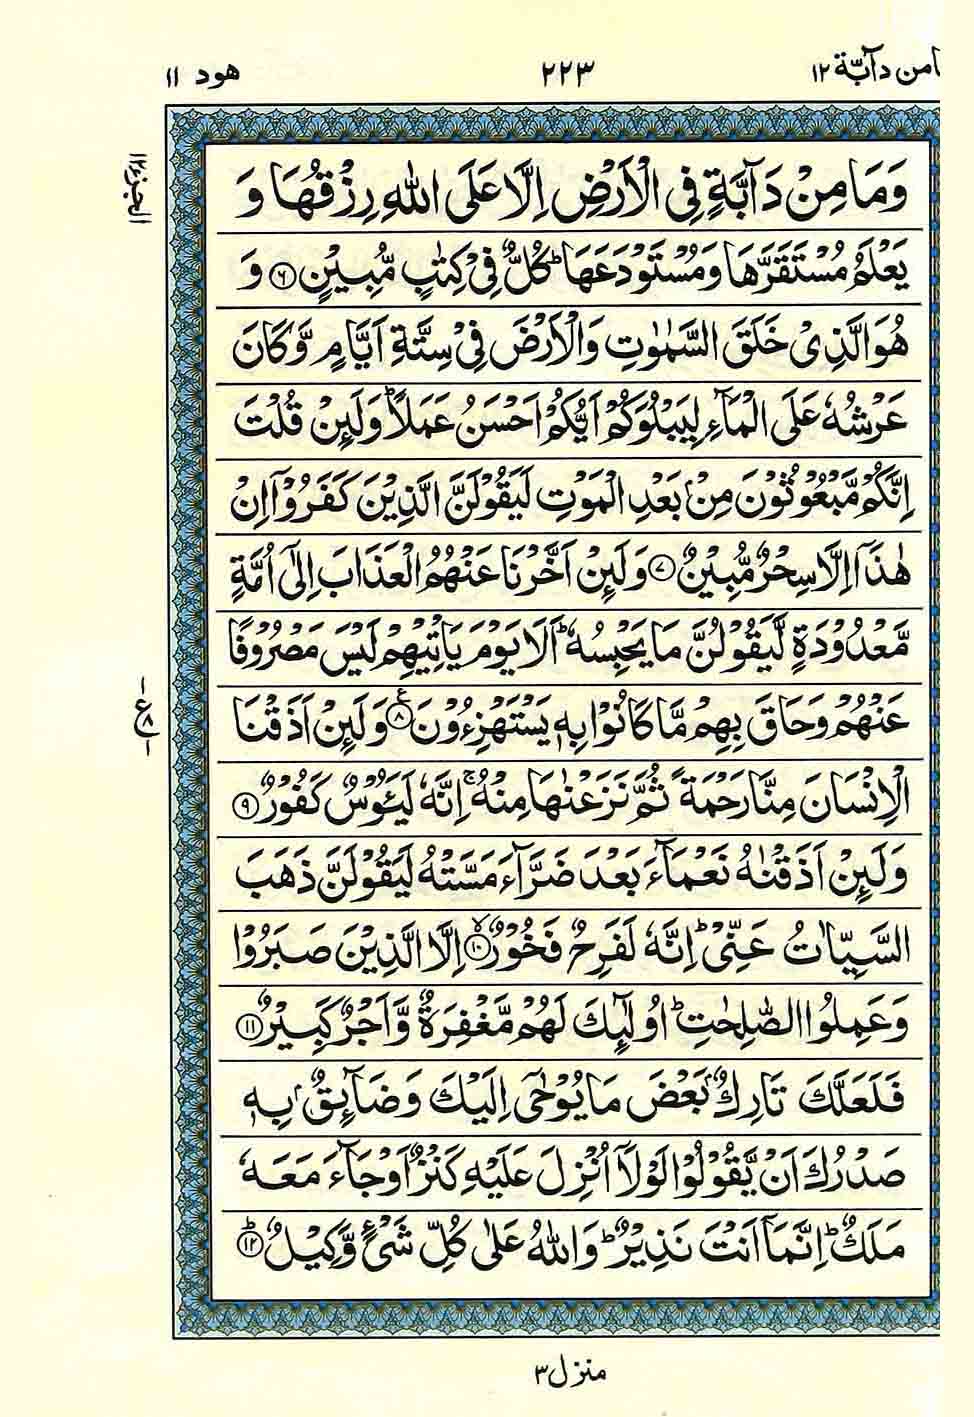 امن دآبة ١٢
٢٢٣
هود ١١
الجزء ١٢
وَمَا مِنْ دَآبَّةٍ فِي الْاَرْضِ اِلَّا عَلَى اللّٰهِ رِزْقُهَا وَ
يَعْلَمُ مُسْتَقَرَّهَا وَمُسْتَوْدَعَهَا ؕ كُلٌّ فِيْ كِتٰبٍ مُّبِيْنٍ ﴿۶﴾ وَ
هُوَ الَّذِيْ خَلَقَ السَّمٰوٰتِ وَالْاَرْضَ فِيْ سِتَّةِ اَيَّامٍ وَّكَانَ
عَرْشُهٗ عَلَى الْمَآءِ لِيَبْلُوَكُمْ اَيُّكُمْ اَحْسَنُ عَمَلًا ؕ وَلَئِنْ قُلْتَ
اِنَّكُمْ مَّبْعُوْثُوْنَ مِنْۢ بَعْدِ الْمَوْتِ لَيَقُوْلَنَّ الَّذِيْنَ كَفَرُوْٓا اِنْ
هٰذَآ اِلَّا سِحْرٌ مُّبِيْنٌ ﴿۷﴾ وَلَئِنْ اَخَّرْنَا عَنْهُمُ الْعَذَابَ اِلٰٓى اُمَّةٍ
مَّعْدُوْدَةٍ لَّيَقُوْلُنَّ مَا يَحْبِسُهٗ ؕ اَلَا يَوْمَ يَاْتِيْهِمْ لَيْسَ مَصْرُوْفًا
عَنْهُمْ وَحَاقَ بِهِمْ مَّا كَانُوْا بِهٖ يَسْتَهْزِءُوْنَ ﴿۸﴾ۧ وَلَئِنْ اَذَقْنَا
الْاِنْسَانَ مِنَّا رَحْمَةً ثُمَّ نَزَعْنٰهَا مِنْهُ ۚ اِنَّهٗ لَيَـُٔوْسٌ كَفُوْرٌ ﴿۹﴾
وَلَئِنْ اَذَقْنٰهُ نَعْمَآءَ بَعْدَ ضَرَّآءَ مَسَّتْهُ لَيَقُوْلَنَّ ذَهَبَ
السَّيِّاٰتُ عَنِّيْ ؕ اِنَّهٗ لَفَرِحٌ فَخُوْرٌ ﴿۱۰﴾ۙ اِلَّا الَّذِيْنَ صَبَرُوْا
وَعَمِلُوا الصّٰلِحٰتِ ؕ اُولٰٓئِكَ لَهُمْ مَّغْفِرَةٌ وَّاَجْرٌ كَبِيْرٌ ﴿۱۱﴾
فَلَعَلَّكَ تَارِكٌۢ بَعْضَ مَا يُوْحٰٓى اِلَيْكَ وَضَآئِقٌۢ بِهٖ
صَدْرُكَ اَنْ يَّقُوْلُوْا لَوْلَاۤ اُنْزِلَ عَلَيْهِ كَنْزٌ اَوْ جَآءَ مَعَهٗ
مَلَكٌ ؕ اِنَّمَآ اَنْتَ نَذِيْرٌ ؕ وَاللّٰهُ عَلٰى كُلِّ شَيْءٍ وَّكِيْلٌ ﴿۱۲﴾ؕ
ع ۸
منزل ٣